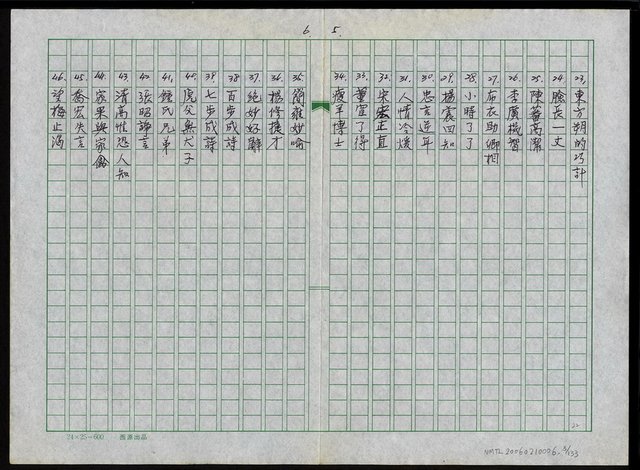 6. 5.
23. 東方朔的巧計
24. 臉長一丈
25. 陳蕃高潔
26. 李廣機智
27. 布衣助卿相
28. 小時了了
29. 楊震四知
30. 忠言逆耳
31. 人情冷煖
32. 宋宏正直
33. 董宣了得
34. 瘦羊博士
35. 簡雍妙喻
36. 楊修捷才
37. 絕妙好辭
38. 百步成詩
39. 七步成詩
40. 虎父無犬子
41. 鍾氏兄弟
42. 張昭諦言
43. 清高惟恐人知
44. 家果與家禽
45. 喬玄失言
46. 望梅止渴
24×25=600
22
NMTL20060210006. 3/133